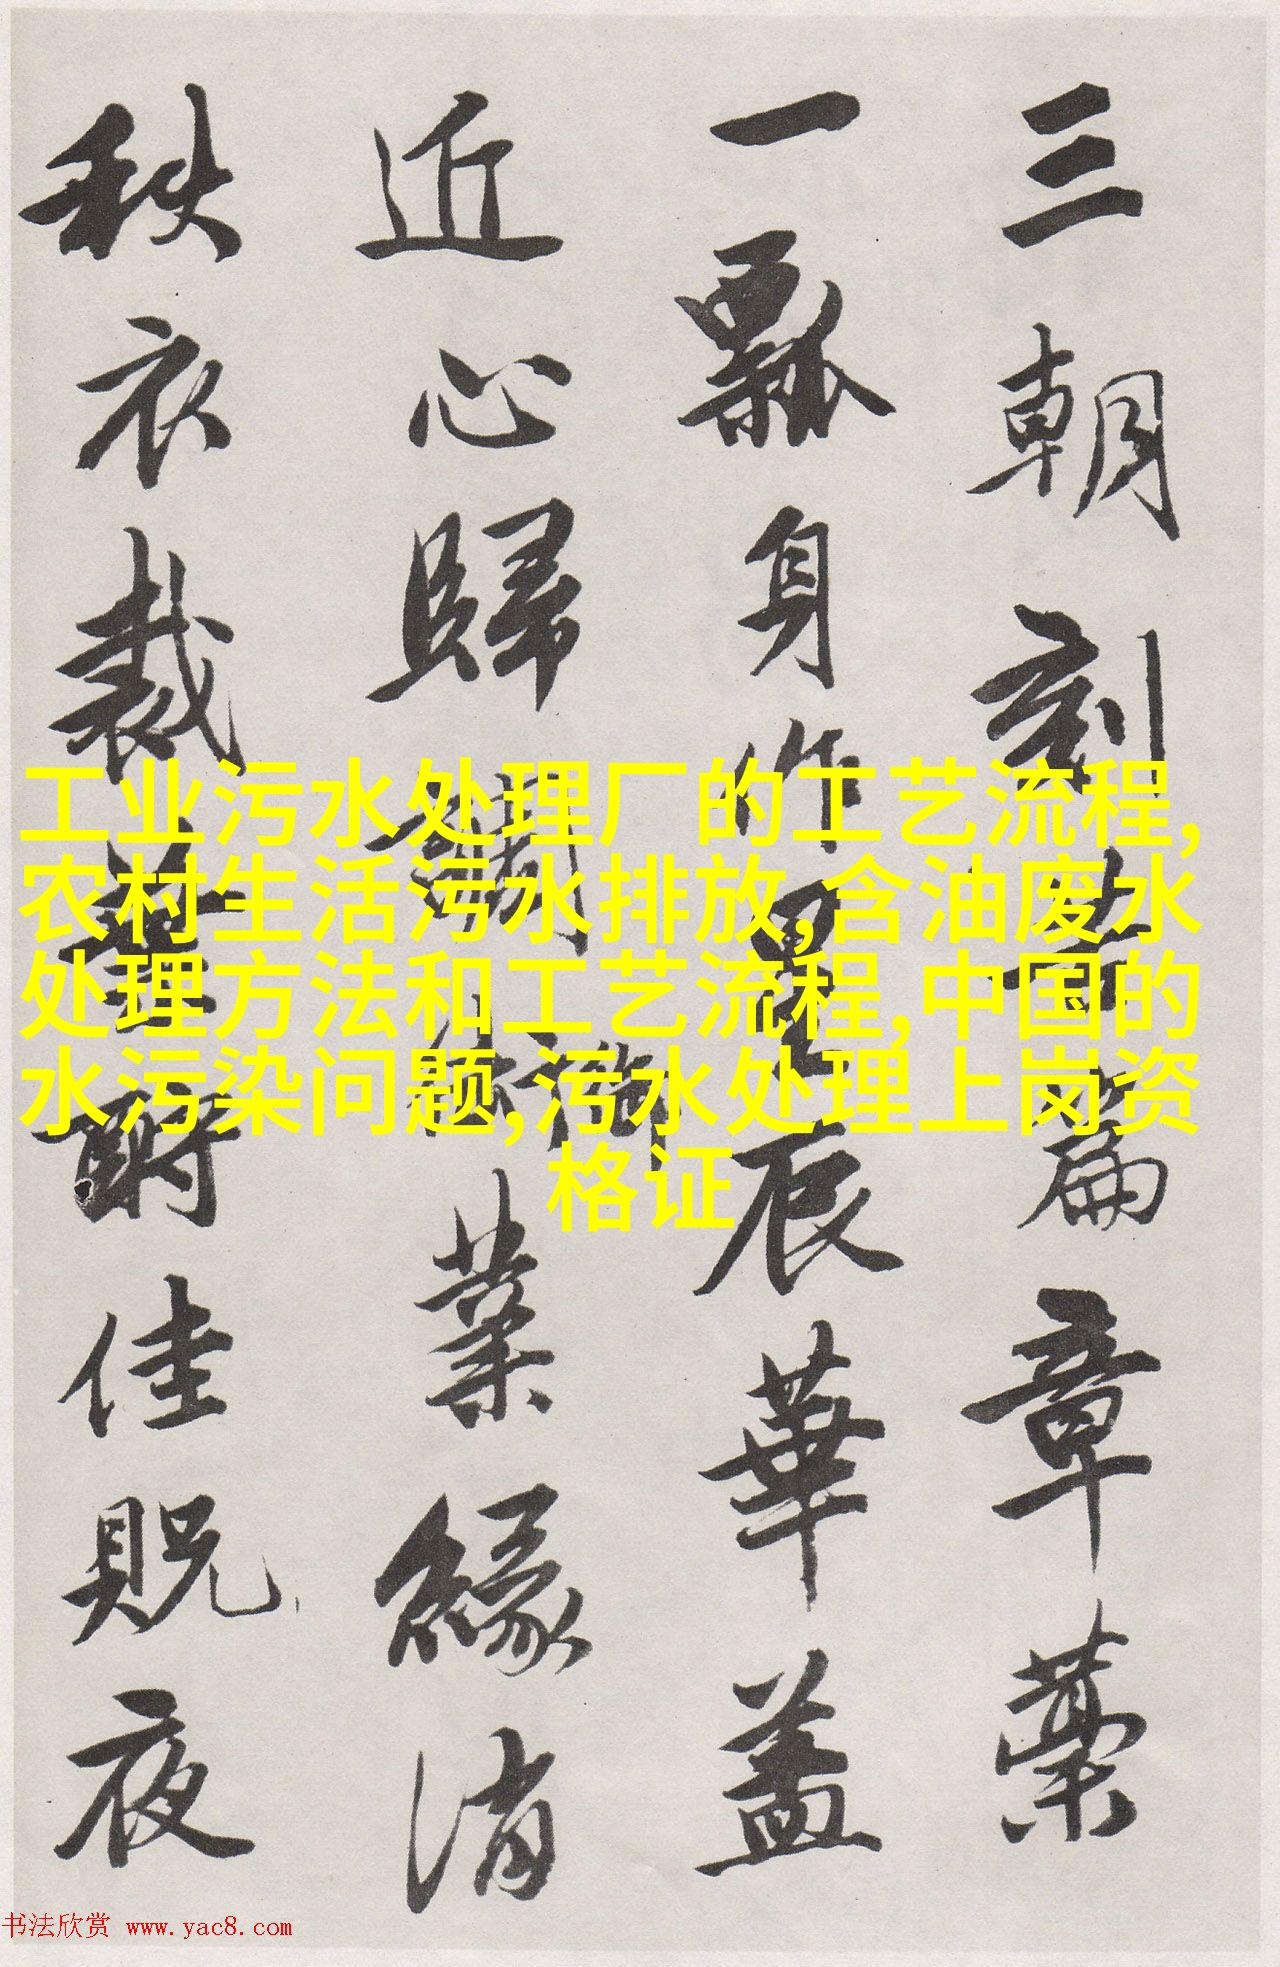 三朝刻篇章藁
一瓢身作星辰華蓋
近心歸業緣消
秋衣裁酹佳貺夜
工业污水处理厂的工艺流程,
农村生活污水排放,含油废水
处理方法和工艺流程,中国的
水污染问题,污水处理上岗资
格证
书法欣赏 www.yac8.com